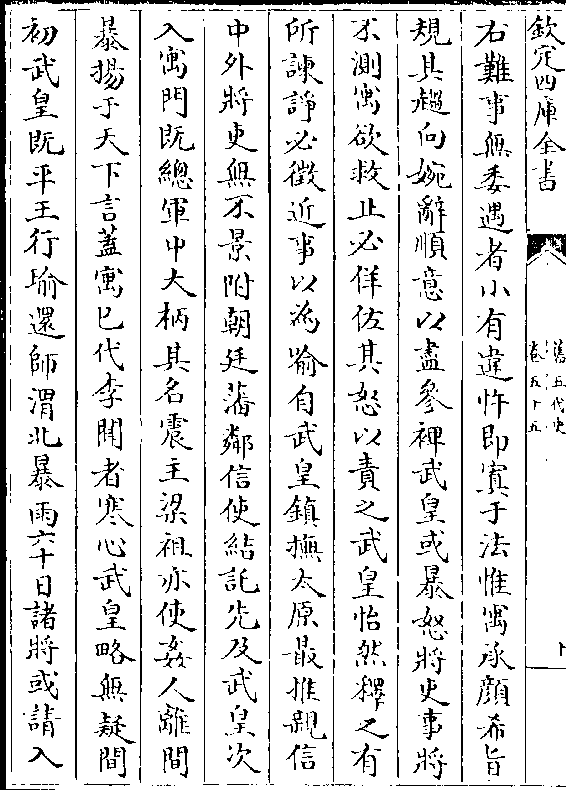 欽定四庫全書
舊五代史
卷五十五
右難事無委遇者小有違忤即寘于法惟寓承顔希旨
規其趨向婉辭順意以盡參裨武皇或暴怒將吏事將
不測寓欲救止必佯佐其怒以責之武皇怡然釋之有
所諫諍必徴近事以為喻自武皇鎮撫太原最推親信
中外將吏無不景附朝廷藩鄰信使結託先及武皇次
入寓門既總軍中大柄其名震主梁祖亦使姦人離間
暴揚于天下言葢寓已代李聞者寒心武皇略無疑間
初武皇既平王行瑜還師渭北暴雨六十日諸將或請入